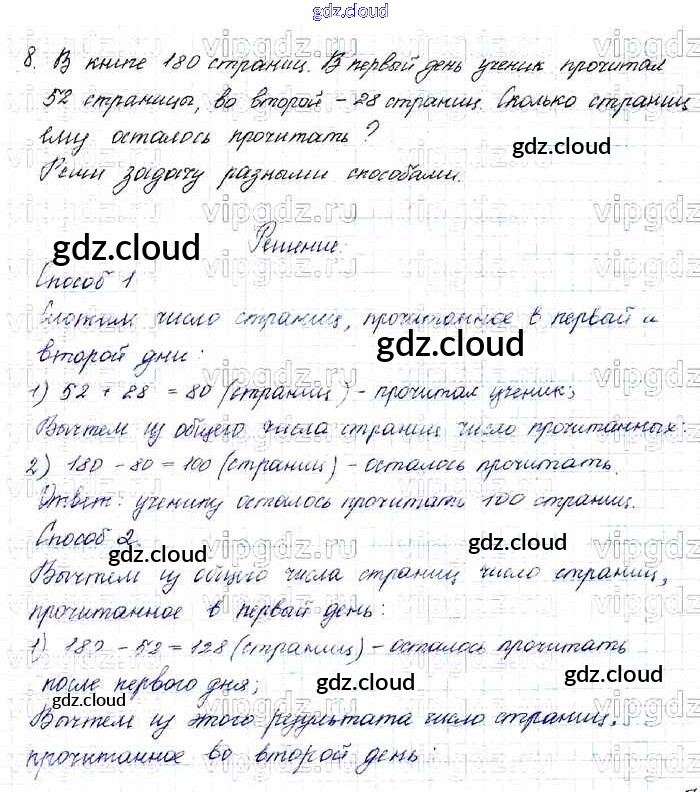 gdz.cloud
8. В книге 180 страниц. В первый день ученик прочитал
52 страницы, во второй - 28 страниц. Сколько страниц
ему осталось прочитать?
gdz.cloud
Реши задачу разными способами.
Решение.
gdz.cloud
Способ 1
Сложим число страниц, прочитанное в первый и
второй дни:
gdz.cloud
1) 52 + 28 = 80 (страниц) - прочитал ученик;
Вычтем из общего числа страниц число прочитанных:
2) 180 - 80 = 100 (страниц) - осталось прочитать.
gdz.cloud
Ответ: ученику осталось прочитать 100 страниц.
Способ 2.
gdz.cloud gdz.cloud
Вычтем из общего числа страниц число страниц,
прочитанное в первый день:
1) 180 - 52 = 128 (страниц) - осталось прочитать
после первого дня;
gdz.cloud gdz.cloud gdz.cloud
Вычтем из этого результата число страниц,
прочитанное во второй день: